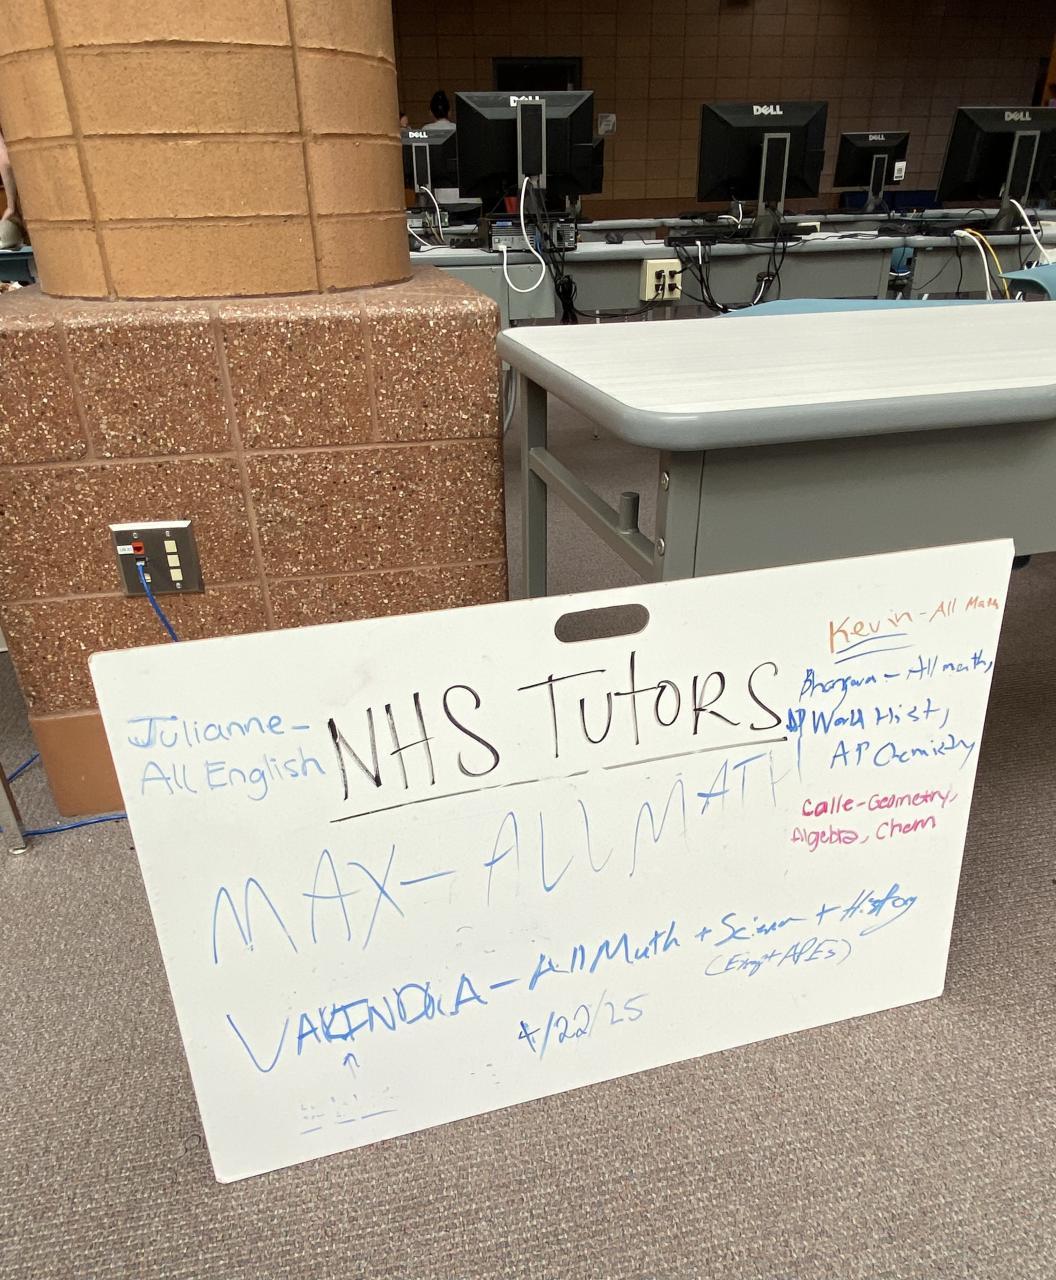 DELL
DELL
DELL
DELL
DELL
NHS TUTORS
Julianne-
All English
Kevin - All Math
- All math,
AP World Hist,
AP Chemistry
Calle-Geometry,
Algebra, Chem
MAX - ALL MATH
- All Math + Science + History
(Except APES)
4/22/25